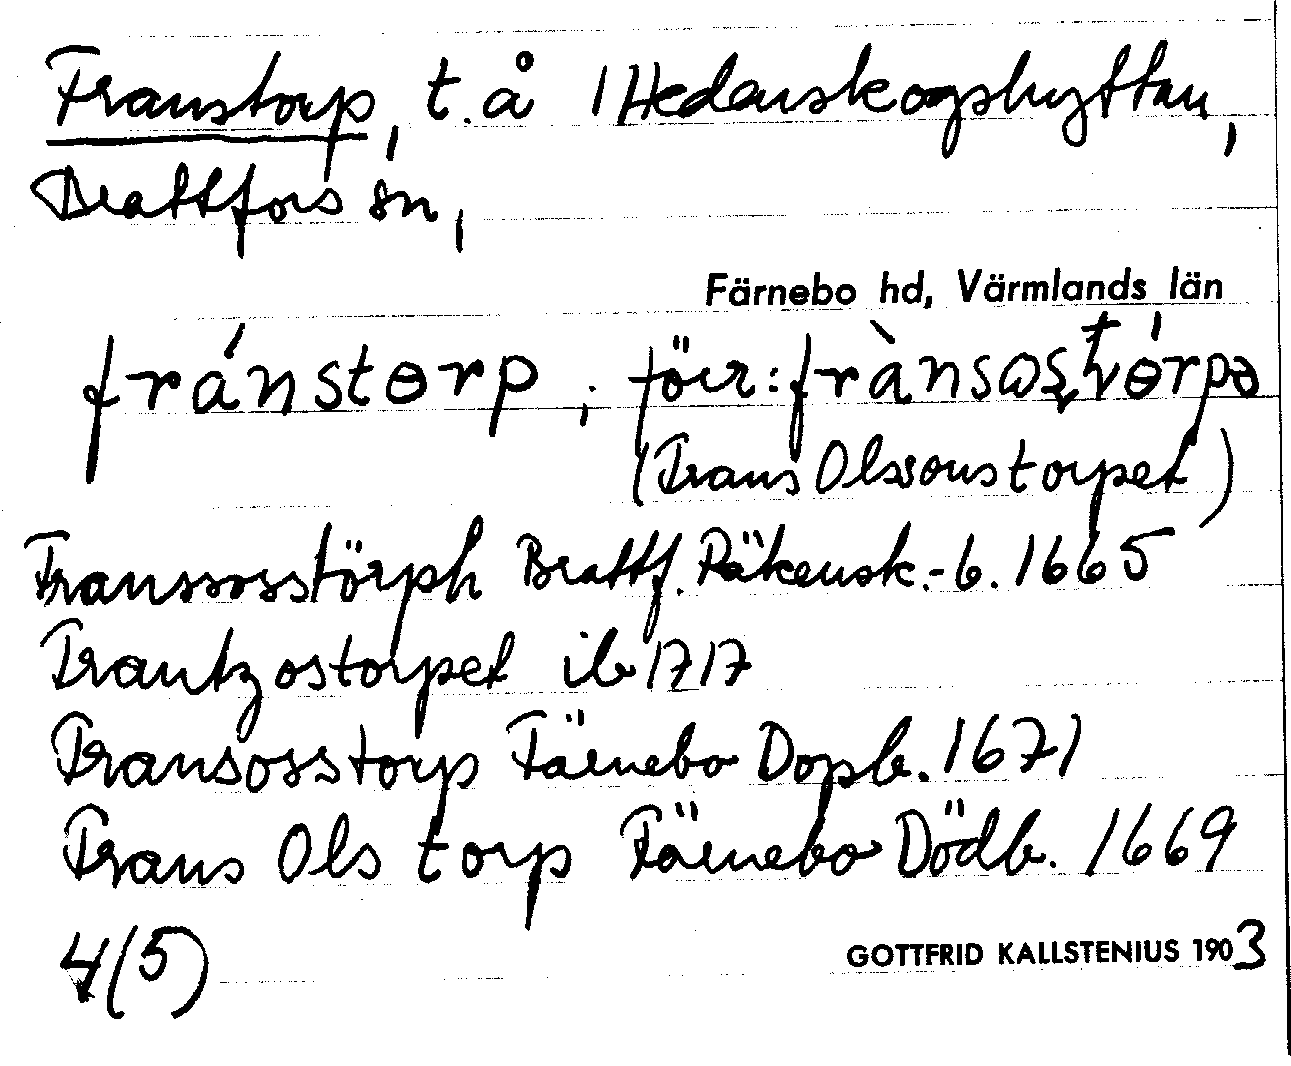 Franstorp, t. å 1 Hedenskogshyttan,
Brattfors sn,
Färnebo hd, Värmlands län
fránstɵrp ; förr: frànsɷstɵ́rpə
(Frans Olssonstorpet)
Franssosstörph Brattf. Räkensk.-b. 1665
Frantzostorpet ib 1717
Fransosstorp Färnebo Dopb. 1671
Frans Ols torp Färnebo Dödb. 1669
4(5)
GOTTFRID KALLSTENIUS 1903